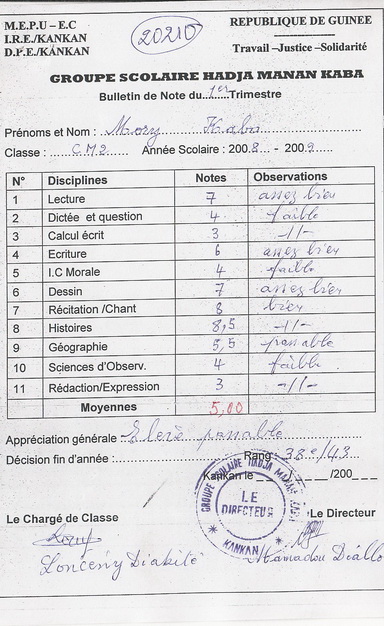 M.E.P.U – E.C
I.R.E./KANKAN
D.P.E./KANKAN
20210
REPUBLIQUE DE GUINEE
Travail –Justice –Solidarité
GROUPE SCOLAIRE HADJA MANAN KABA
Bulletin de Note du 1er Trimestre
Prénoms et Nom : Mory Kaba
Classe : CM2 Année Scolaire : 2008 - 2009
N° Disciplines Notes Observations
1 Lecture 7 assez bien
2 Dictée et question 4 faible
3 Calcul écrit 3 -//-
4 Ecriture 6 assez bien
5 I.C Morale 4 faible
6 Dessin 7 assez bien
7 Récitation /Chant 8 bien
8 Histoires 8,5 -//-
9 Géographie 5,5 passable
10 Sciences d'Observ. 4 faible
11 Rédaction/Expression 3 -//-
Moyennes 5,00
Appréciation générale : Elève passable
Décision fin d'année : Rang : 38e/43
Kankan le /200
GROUPE SCOLAIRE HADJA MANAN KABA
LE
DIRECTEUR
KANKAN
Le Chargé de Classe Le Directeur
Lonceny Diabité Mamadou Diallo